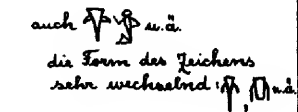 auch u.ä.
die Form des Zeichens
sehr wechselnd: , u.ä.